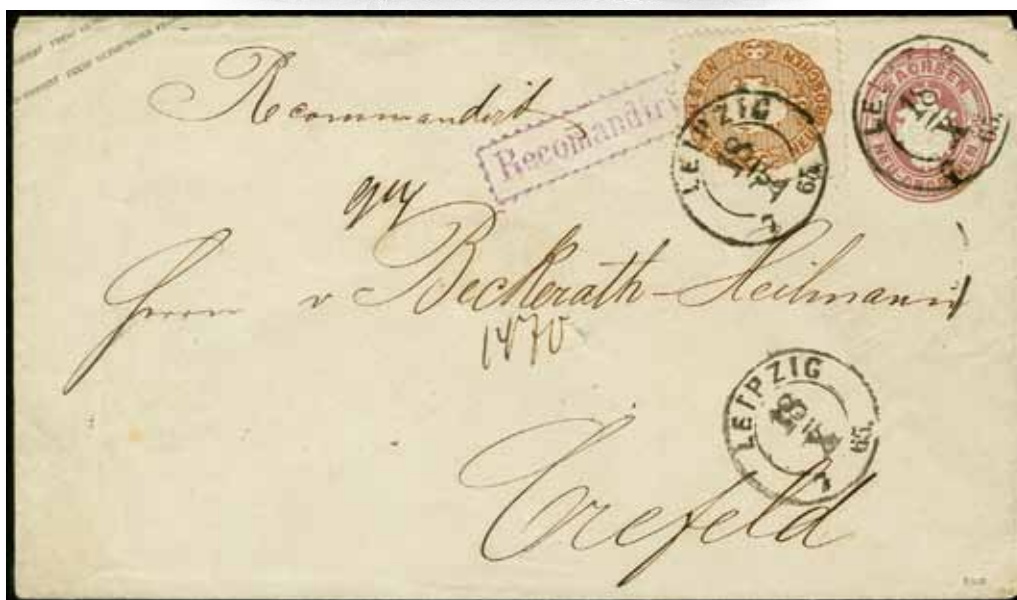 Recommandirt
Recomandirt
SACHSEN
NEU-GROSCHEN
LEIPZIG
18
65.
SACHSEN
NEU-GROSCHEN
LEIPZIG
18
65.
Herrn v Beckerath-Heilmann
1470
LEIPZIG
18
65.
Crefeld